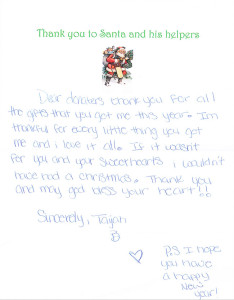 Thank you to Santa and his helpers
Dear donators thank you for all
the gifts that you got me this year. I'm
thankful for every little thing you got
me and i love it all. If it wasent
for you and your sweet hearts i wouldn't
have had a christmas. Thank you
and may god bless your heart!!
Sincerely,
P.S I hope
you have
a happy
New
year!